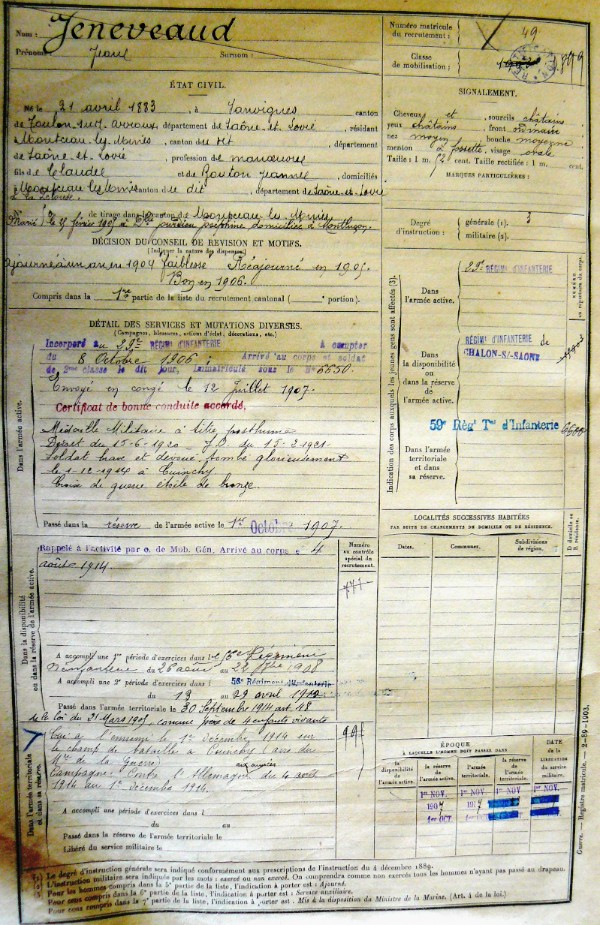 Nom : Jeneveaud
Prénoms : Jean Surnom :
Numéro matricule du recrutement : 49
Classe de mobilisation :
ÉTAT CIVIL.
Né le 21 avril 1883, à Sanvignes, canton
de Toulon-sur-Arroux, département de Saône-et-Loire, résidant
à Montceau-les-Mines, canton du dit, département
de Saône-et-Loire, profession de manoeuvre
fils de Claude et de Jeanne, domiciliés
à Montceau les Mines, canton du dit, département de Saône-et-Loire
de tirage dans le canton de Montceau les Mines
Marié le 15 février 1905 à
SIGNALEMENT.
Cheveux et sourcils châtains
yeux châtains, front ordinaire
nez moyen, bouche moyenne
menton à fossette, visage ovale
Taille : 1 m. cent. Taille rectifiée : 1 m. cent.
MARQUES PARTICULIÈRES :
Degré d'instruction : générale (1). 3
militaire (2).
DÉCISION DU CONSEIL DE RÉVISION ET MOTIFS.
(Indiquer la nature des dispenses)
ajourné à un an en 1904 faiblesse Réajourné en 1905
Bon en 1906.
Compris dans la 1re partie de la liste du recrutement cantonal ( portion).
DÉTAIL DES SERVICES ET MUTATIONS DIVERSES.
(Campagnes, blessures, actions d'éclat, décorations, etc.)
Incorporé au 29e RÉGIMENT D'INFANTERIE à compter
du 8 Octobre 1906 ; Arrivé au corps et soldat
de 2me classe le dit jour, immatriculé sous le No 6650.
Envoyé en congé le 12 Juillet 1907.
Certificat de bonne conduite accordé,
Médaille Militaire à titre posthume
Décret du 15-6-1920 J.O. du 15-2-1921
Soldat brave et dévoué, tombé glorieusement
le 1-12-1914 à Cuinchy
Croix de guerre étoile de bronze.
Passé dans la réserve de l'armée active le 1er Octobre 1907.
Dans l'armée active.
Rappelé à l'activité par o. de Mob. Gén. Arrivé au corps le 4
août 1914.
Numéro au contrôle spécial du recrutement.
Dans la disponibilité ou dans la réserve de l'armée active.
A accompli une 1re période d'exercices dans le Régiment
d'Infanterie du 26 août au 22 7bre 1908
A accompli une 2e période d'exercices dans le 56e Régiment d'Infanterie
du 13 au 29 avril
Passé dans l'armée territoriale le 30 Septembre 1914 art. 48
de la loi du 21 Mars 1905 comme père de 4 enfants vivants
Tué à l'ennemi le 1er Décembre 1914 sur
le champ de bataille à Cuinchy (avis du
Mre de la Guerre)
Campagne : Contre l'Allemagne du 4 août
1914 au 1er décembre 1914.
aux armées
A accompli une période d'exercices dans l
du au
Passé dans la réserve de l'armée territoriale le
Libéré du service militaire le
Dans l'armée territoriale et dans sa réserve.
Indication des corps auxquels les jeunes gens sont affectés (3).
Dans l'armée active.
29e RÉGIMENT D'INFANTERIE
Dans la disponibilité ou dans la réserve de l'armée active.
RÉGIMt D'INFANTERIE de
CHALON-S/-SAONE
59e Régt Tal d'Infanterie
Dans l'armée territoriale et dans sa réserve.
LOCALITÉS SUCCESSIVES HABITÉES
PAR SUITE DE CHANGEMENTS DE DOMICILE OU DE RÉSIDENCE.
Dates. Communes. Subdivisions de région. D domicile ou R résidence.
ÉPOQUE
À LAQUELLE L'HOMME DOIT PASSER DANS
la disponibilité de l'armée active. la réserve de l'armée active. l'armée territoriale. la réserve de l'armée territoriale. DATE de la LIBÉRATION du service militaire.
1er NOV. 1er NOV. 1er NOV. 1er NOV.
1907
1er OCT.
Guerre. — Registre matricule. — 2-89-1903.
(1) Le degré d'instruction générale sera indiqué conformément aux prescriptions de l'instruction du 4 décembre 1889.
(2) L'instruction militaire sera indiquée par les mots : exercé ou non exercé. On comprendra comme non exercés tous les hommes n'ayant pas passé au drapeau.
Pour les hommes compris dans la 5e partie de la liste, l'indication à porter est : Ajourné.
Pour ceux compris dans la 6e partie de la liste, l'indication à porter est : Service auxiliaire.
Pour ceux compris dans la 7e partie de la liste, l'indication à porter est : Mis à la disposition du Ministre de la Marine. (Art. 4 de la loi.)